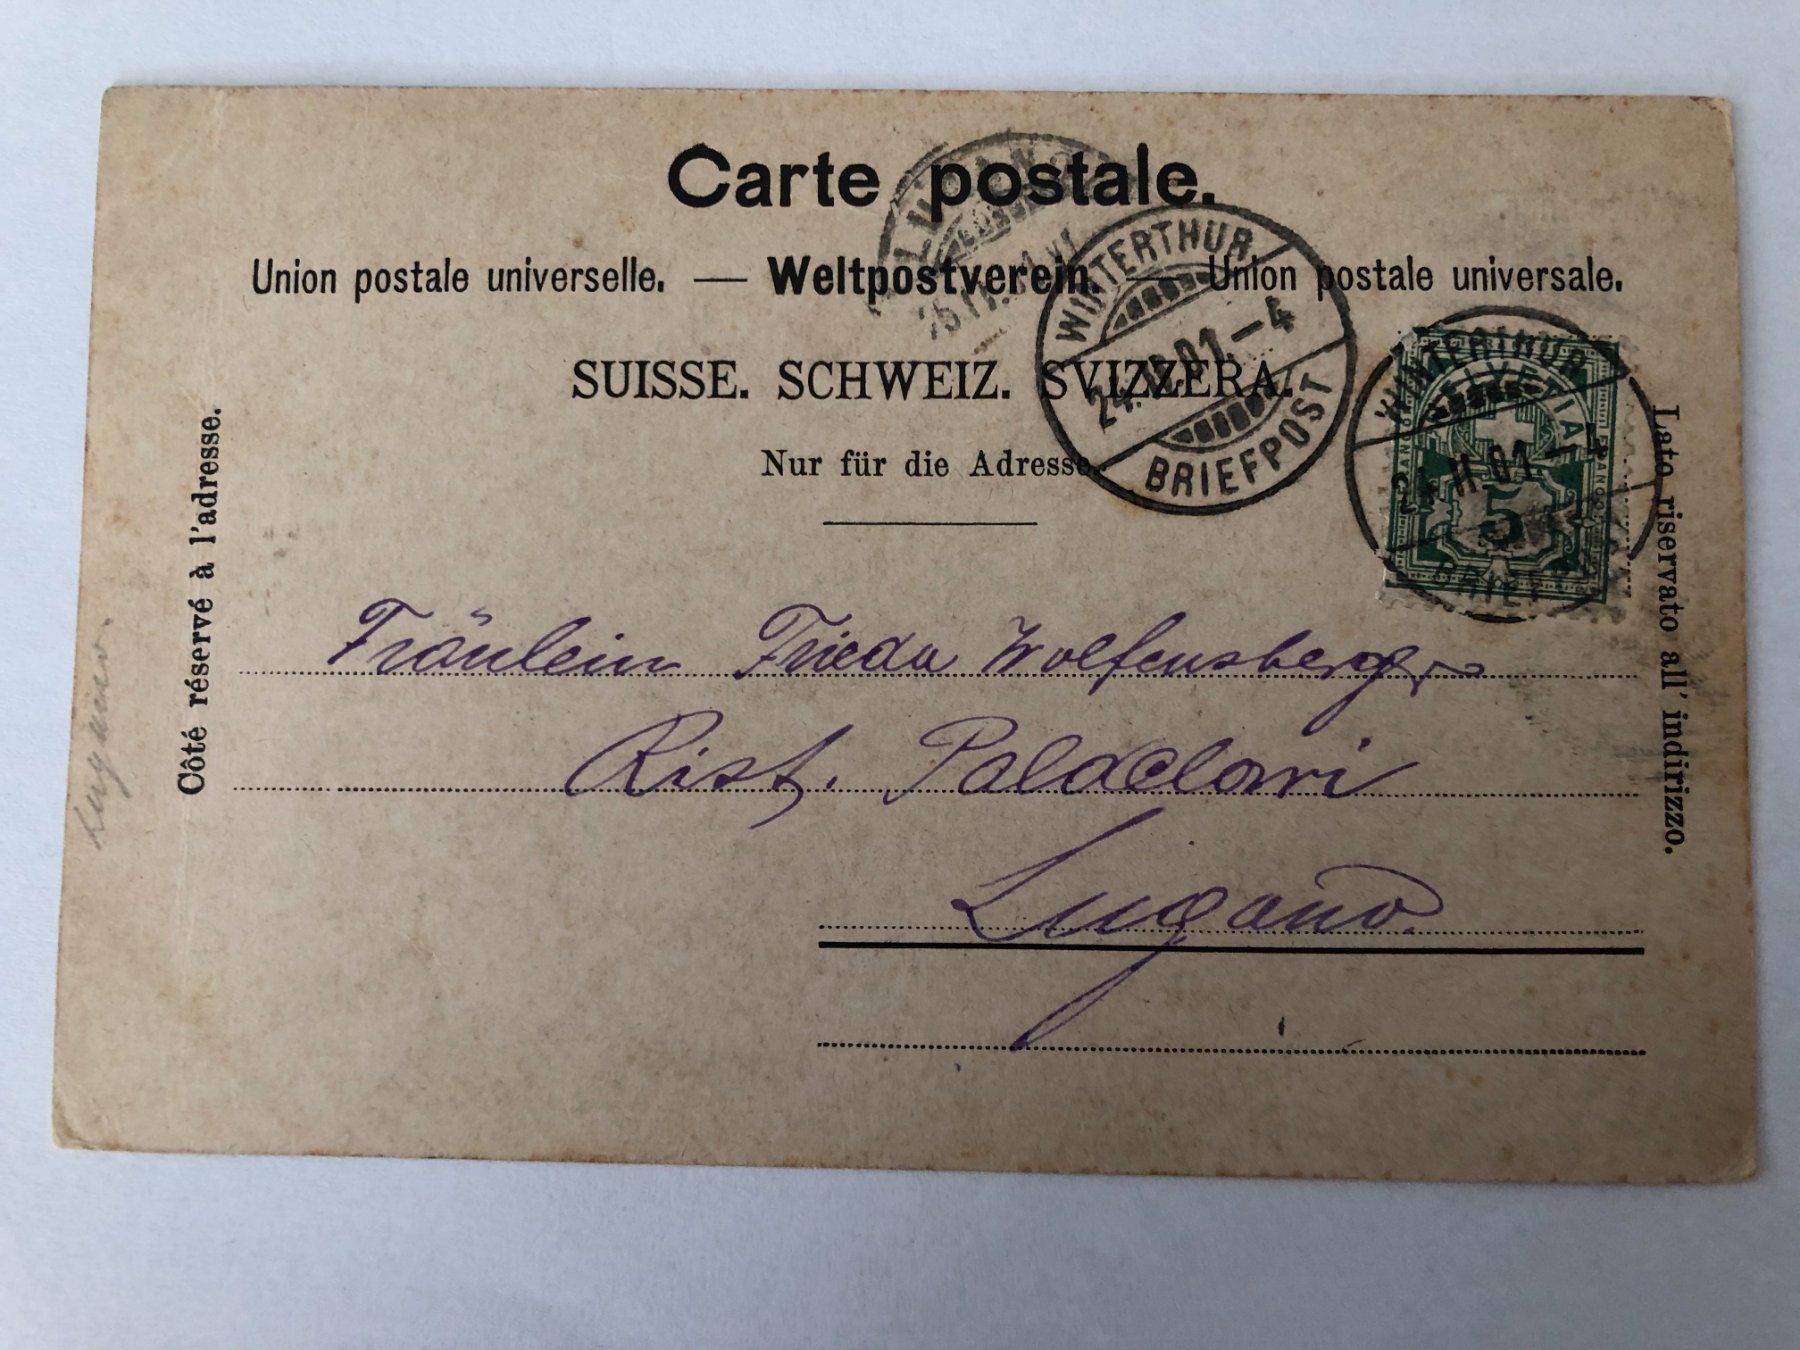 Carte postale.
Union postale universelle. — Weltpostverein. — Union postale universale.
SUISSE. SCHWEIZ. SVIZZERA.
Nur für die Adresse.
Côté réservé à l'adresse.
Lato riservato all' indirizzo.
WINTERTHUR
24.II.01-4
BRIEFPOST
WINTERTHUR
24.II.01-4
HELVETIA
FRANCO
FRANCO
5
Fräulein Frieda Wolfensberger
Rist.
Lugano.
Lugano.